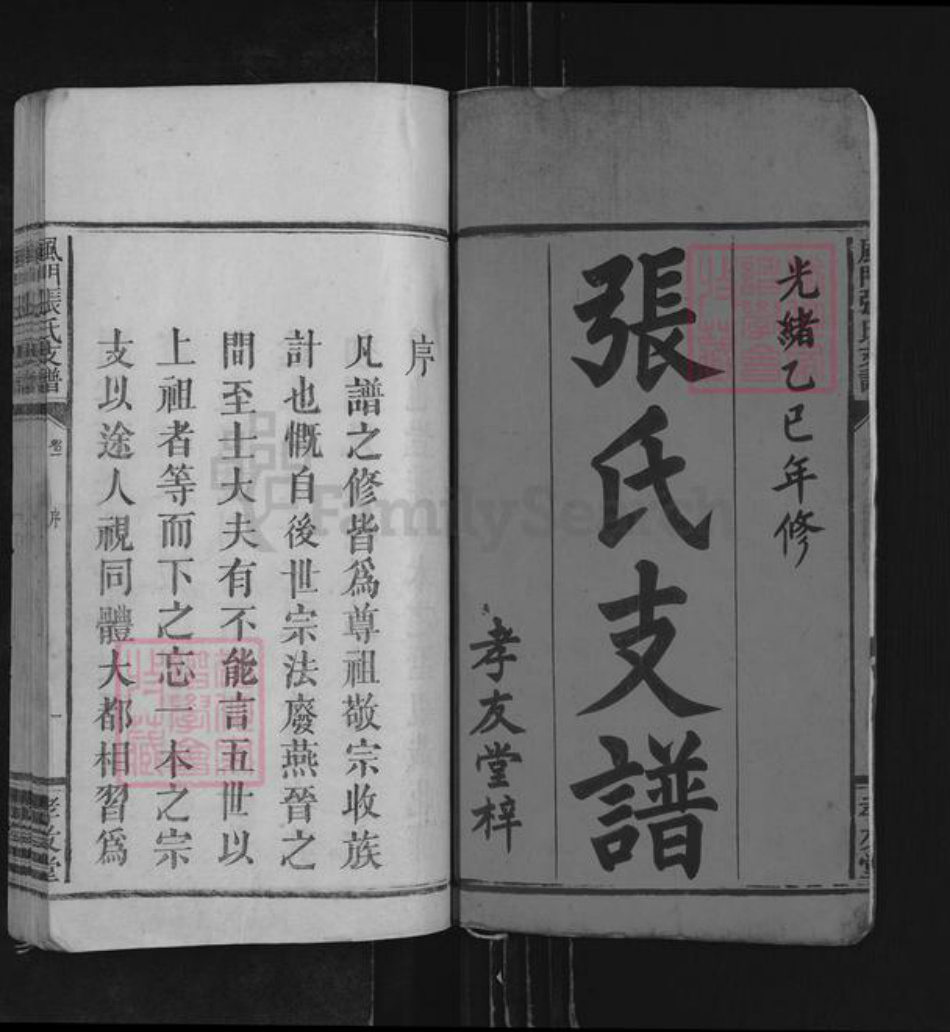 光緒乙巳年修
張氏支譜
孝友堂梓
序
凡譜之修皆為尊祖敬宗收族
計也慨自後世宗法廢燕晉之
間至士大夫有不能言五世以
上祖者等而下之忘一本之宗
支以途人視同體大都相習為
風門張氏支譜
卷一
序
一
孝友堂
FamilySearch